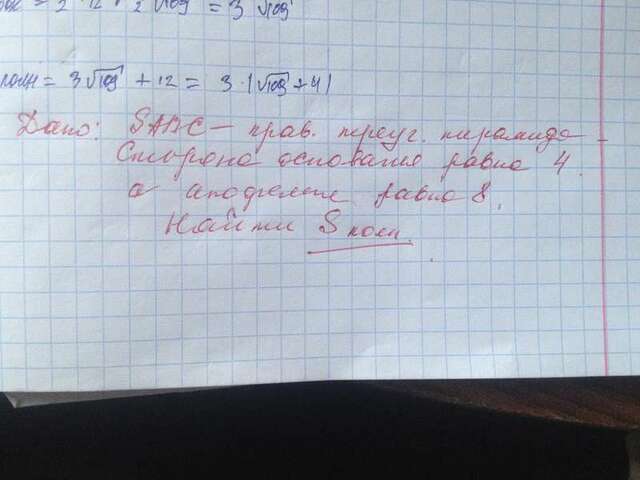 = 3√109
полн = 3√109 + 12 = 3·(√109 + 4)
Дано: SABC – прав. треуг. пирамида –
Сторона основания равна 4.
а апофема равна 8.
Найти Sполн.